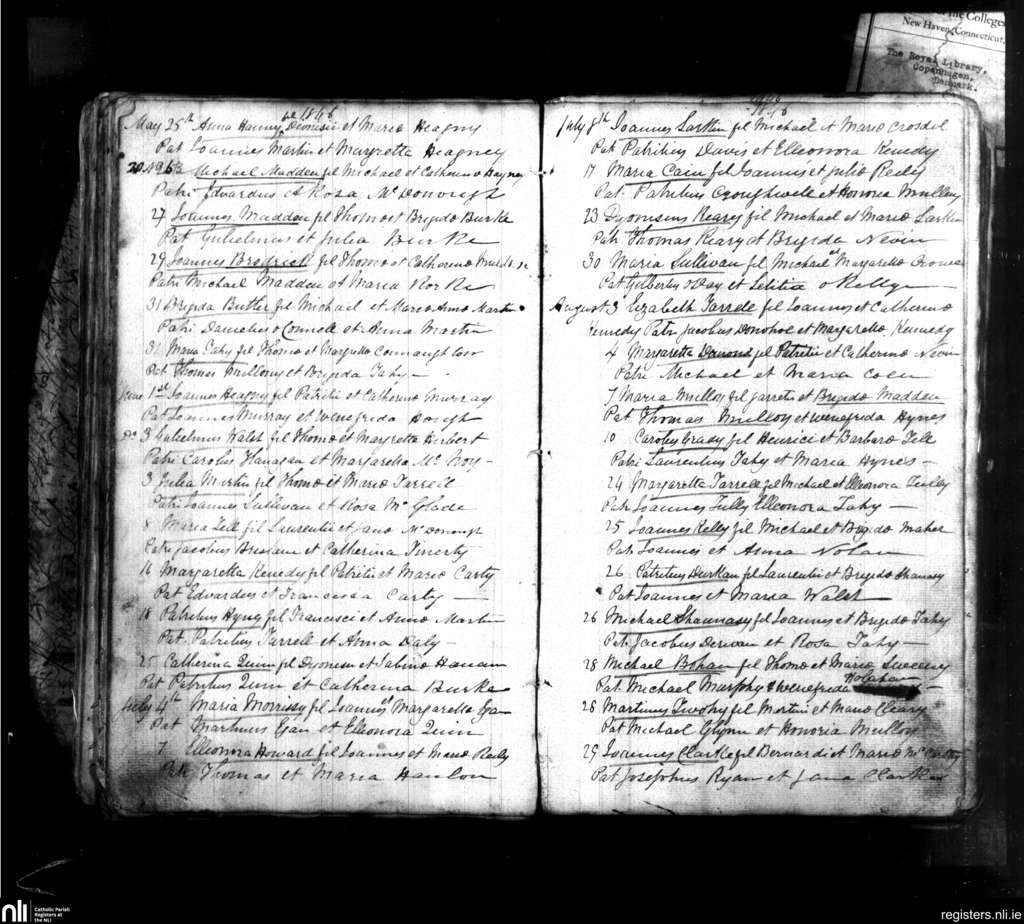 of the Colleges
New Haven, Connecticut,
The Royal Library,
Copenhagen,
Denmark.
1846
May 25th Anna Hanny Dionisii et Maria Heagny
Pat Joannes Martin et Margretta Heagney
Michael Madden fil Michael et Catherina Hayney
Patri Edvardus et Rosa McDonough
27 Joannes Madden fil Thom et Brigida Burke
Pat Gulielmus et Julia Burke
29 Joannes Brodrick fil Thoma et Catherena
Patri Michael Madden et Maria Rorke
31 Brigida Butler fil Michael et Maria Anna Martin
Patri Danielus o Connell et Anna Martin
31 Maria Cahy fil Thoma et Margretta Connaughton
Pat Thomas Mullony et Brigida Fahy
June 1st Joannes Heagny fil Patritii et Catherine Murray
Pat Joannes Murray et Wenefrida Hough
Do 3 Gulielmus Walsh fil Thoma et Margretta Herbert
Patri Carolus Flanagan et Margaretta McNoy
3 Julia Martin fil Thoma et Maria Farrell
Patri Joannes Sullivan et Rosa McGlade
8 Maria Tell fil Laurentii et Jana McDonough
Patri Jacobus Breslane et Catherina Finerty
16 Margaretta Kenedy fil Patritii et Maria Carty
Pat Edvardus et Francessa Carty
18 Patritius Hyney fil Francisci et Anna Martin
Pat Patritius Farrell et Anna Daly
25 Catherina Quin fil Dyonisii et Sabina Hanam
Pat Patritius Quin et Catherina Burke
July 4th Maria Morrissy fil Joannis et Margaretta Egan
Pat Martinus Egan et Elleonora Quin
7 Elleonora Howard fil Joannes et Maria Reily
Patr Thomas et Maria Hanlon
1846
July 8th Joannes Larkin fil Michael et Maria Crosdil
Pat Patritius Davis et Elleonora Kenedy
17 Maria Cain fil Joannis et Julia Reely
Pat Patritius Croughwell et Honora Mullony
23 Dyonisius Keary fil Michael et Maria Larkin
Patr Thomas Keary et Brigida Nevin
30 Maria Sullivan fil Michael et Margaretta
Pat Gilbertus O Day et Letitia o Kelly
August 3 Elizabeth Farrell fil Joannis et Catherina
Kenedy Patri Jacobus Donohoe et Margaretta Kennedy
4 Margaretta fil Patritii et Catherina Nevin
Patri Michael et Maria Coen
7 Maria Mulloy fil Garretis et Brigida Madden
Pat Thomas Mulloy et Wenefrida Hynes
10 Caroly Grady fil Henrici et Barbara Tell
Patri Laurentius Fahy et Maria Hynes
24 Margaretta Farrell fil Michael et Elleonora Tully
Patr Joannes Tully Elleonora Fahy
25 Joannes Kelly fil Michael et Brigida Maher
Pat Joannes et Anna Nolan
26 Patritius Durkan fil Laurentii et Brigida Shanasy
Pat Joannes et Maria Walsh
26 Michael Shaunasy fil Joannes et Brigida Fahy
Patr Jacobus Derwan et Rosa Fahy
28 Michael Bohan fil Thoma et Maria Sweeney
Pat Michael Murphy et Wenefrida Holahan
28 Martinus Twohy fil Martini et Maria Cleary
Pat Michael Glynn et Honoria Mulloy
29 Joannes Clarke fil Bernardi et Maria McCarthy
Pat Josephus Ryan et Jana Clarke
nli
Catholic Parish
Registers at
the NLI
registers.nli.ie